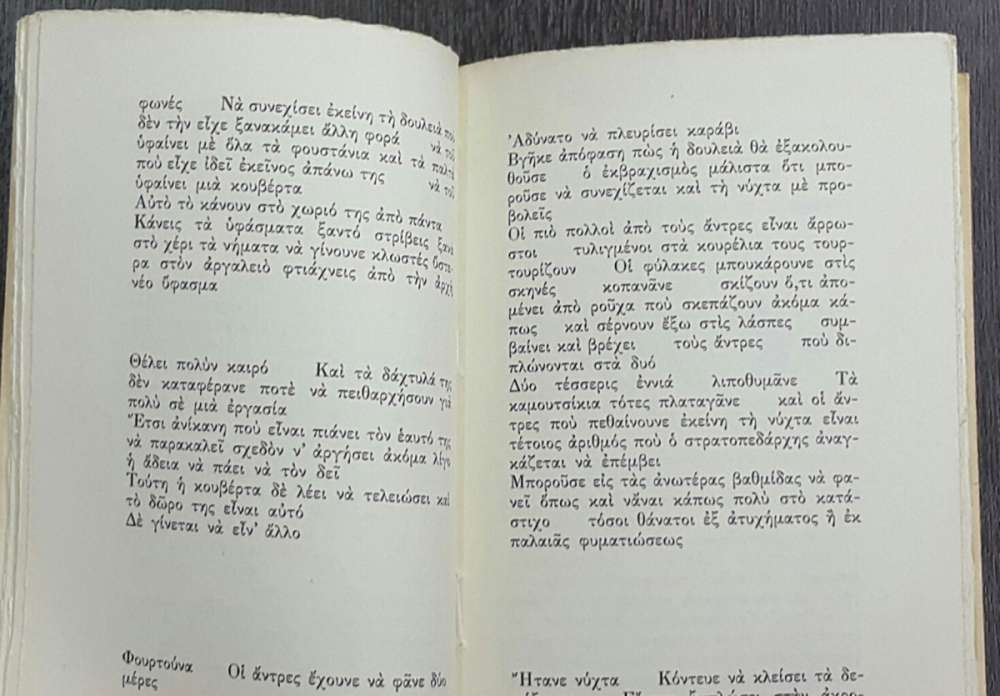 φωνές Νὰ συνεχίσει ἐκείνη τὴ δουλειὰ ποὺ
δὲν τὴν εἶχε ξανακάμει ἄλλη φορά νὰ τοῦ
ὑφαίνει μὲ ὅλα τὰ φουστάνια καὶ τὰ παλτὰ
ποὺ εἶχε ἰδεῖ ἐκεῖνος ἀπάνω της νὰ τοῦ
ὑφαίνει μιὰ κουβέρτα
Αὐτὸ τὸ κάνουν στὸ χωριό της ἀπὸ πάντα
Κάνεις τὰ ὑφάσματα ξαντό στρίβεις ξανὰ
στὸ χέρι τὰ νήματα νὰ γίνουνε κλωστές ὕστε-
ρα στὸν ἀργαλειὸ φτιάχνεις ἀπὸ τὴν ἀρχὴ
νέο ὕφασμα
Θέλει πολὺν καιρό Καὶ τὰ δάχτυλά της
δὲν καταφέρανε ποτὲ νὰ πειθαρχήσουν γιὰ
πολὺ σὲ μιὰ ἐργασία
Ἔτσι ἀνίκανη ποὺ εἶναι πιάνει τὸν ἑαυτό της
νὰ παρακαλεῖ σχεδὸν ν' ἀργήσει ἀκόμα λίγο
ἡ ἄδεια νὰ πάει νὰ τὸν δεῖ
Τούτη ἡ κουβέρτα δὲ λέει νὰ τελειώσει καὶ
τὸ δῶρο της εἶναι αὐτό
Δὲ γίνεται νὰ εἶν' ἄλλο
Φουρτούνα Οἱ ἄντρες ἔχουνε νὰ φᾶνε δύο
μέρες
Ἀδύνατο νὰ πλευρίσει καράβι
Βγῆκε ἀπόφαση πὼς ἡ δουλειὰ θὰ ἐξακολου-
θοῦσε ὁ ἐκβραχισμὸς μάλιστα ὅτι μπο-
ροῦσε νὰ συνεχίζεται καὶ τὴ νύχτα μὲ προ-
βολεῖς
Οἱ πιὸ πολλοὶ ἀπὸ τοὺς ἄντρες εἶναι ἄρρω-
στοι τυλιγμένοι στὰ κουρέλια τους τουρ-
τουρίζουν Οἱ φύλακες μπουκάρουνε στὶς
σκηνές κοπανᾶνε σκίζουν ὅ,τι ἀπο-
μένει ἀπὸ ροῦχα ποὺ σκεπάζουν ἀκόμα κά-
πως καὶ σέρνουν ἔξω στὶς λάσπες συμ-
βαίνει καὶ βρέχει τοὺς ἄντρες ποὺ δι-
πλώνονται στὰ δυό
Δύο τέσσερις ἐννιά λιποθυμᾶνε Τὰ
καμουτσίκια τότες πλαταγᾶνε καὶ οἱ ἄν-
τρες ποὺ πεθαίνουνε ἐκείνη τὴ νύχτα εἶναι
τέτοιος ἀριθμὸς ποὺ ὁ στρατοπεδάρχης ἀναγ-
κάζεται νὰ ἐπέμβει
Μποροῦσε εἰς τὰς ἀνωτέρας βαθμίδας νὰ φα-
νεῖ ὅπως καὶ νἄναι κάπως πολὺ στὸ κατά-
στιχο τόσοι θάνατοι ἐξ ἀτυχήματος ἢ ἐκ
παλαιᾶς φυματιώσεως
Ἤτανε νύχτα Κόντευε νὰ κλείσει τὰ δε-